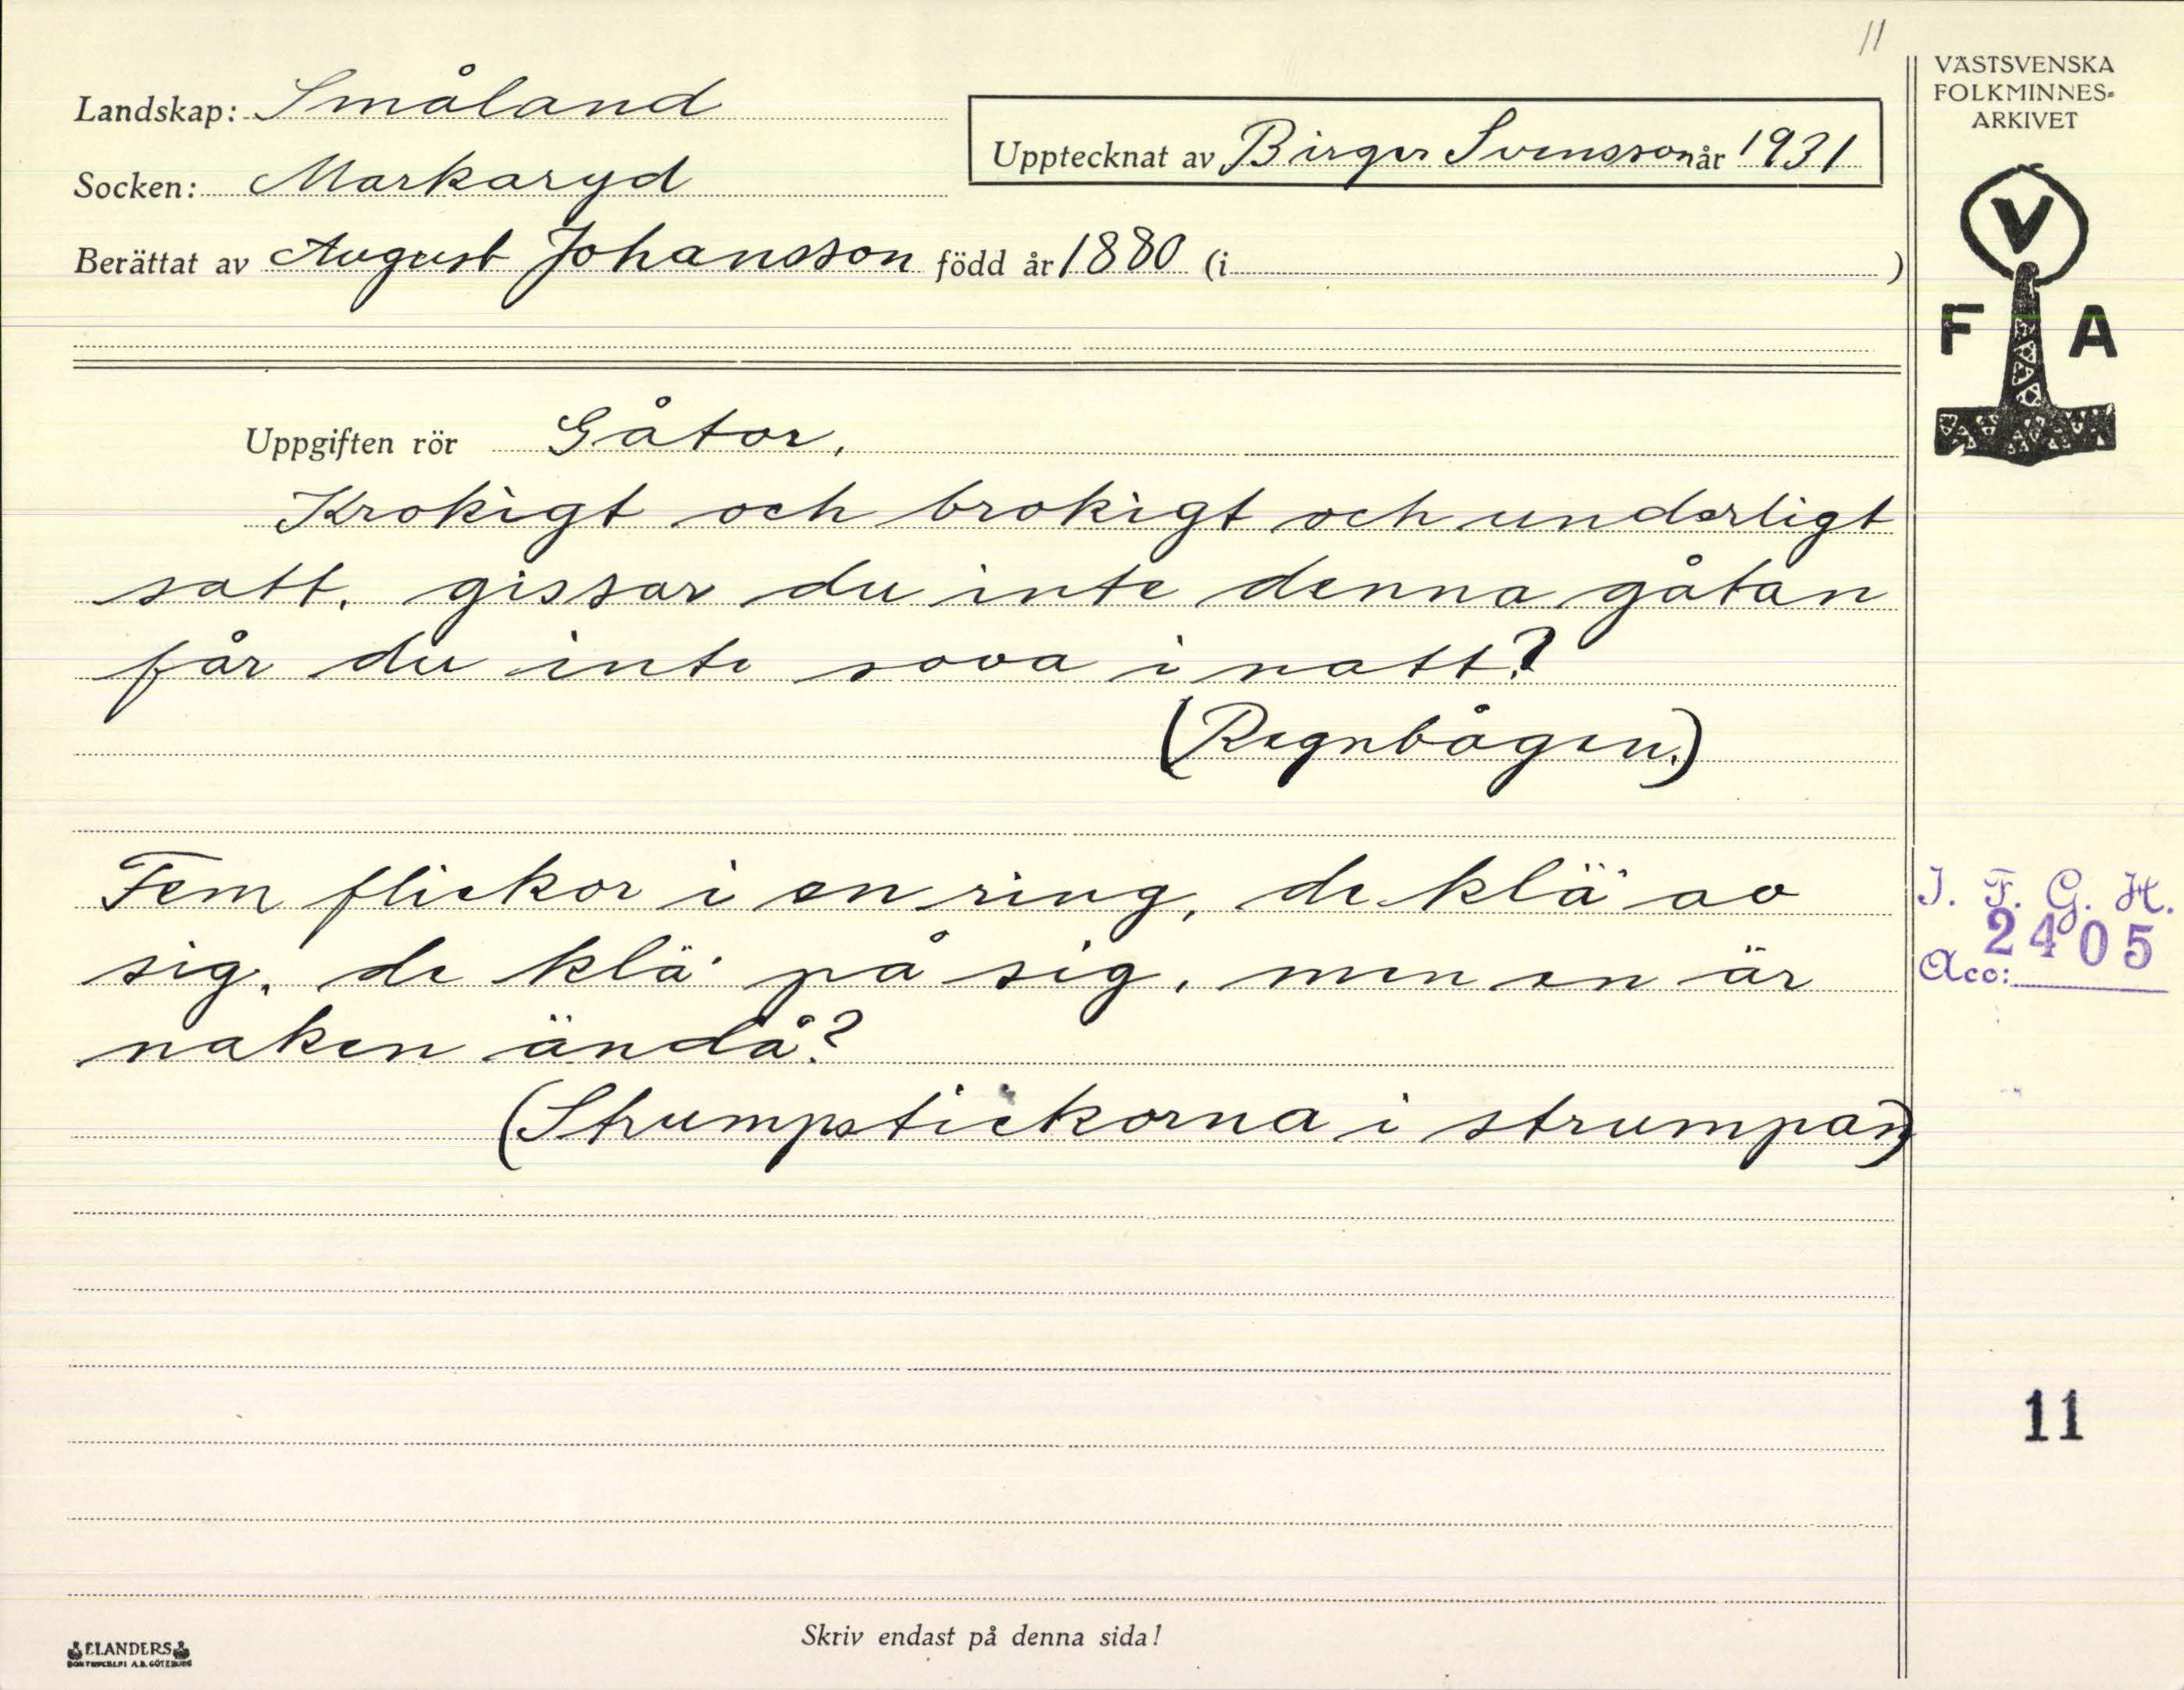 11
Landskap: Småland
Socken: Markaryd
Upptecknat av Birger Svensson år 1931
Berättat av August Johansson född år 1880 (i )
VÄSTSVENSKA
FOLKMINNES-
ARKIVET
V
F A
Uppgiften rör Gåtor.
Krokigt och brokigt och underligt
satt. gissar du inte denna gåtan
får du inte sova i natt?
(Regnbågen.)
Fem flickor i en ring, de klä' av
sig, de klä' på sig, men en är
naken ändå?
(Strumpstickorna i strumpan)
I. F. G. H.
2405
Acc:
11
Skriv endast på denna sida!
ELANDERS
BOKTRYCKERI A.B. GÖTEBORG